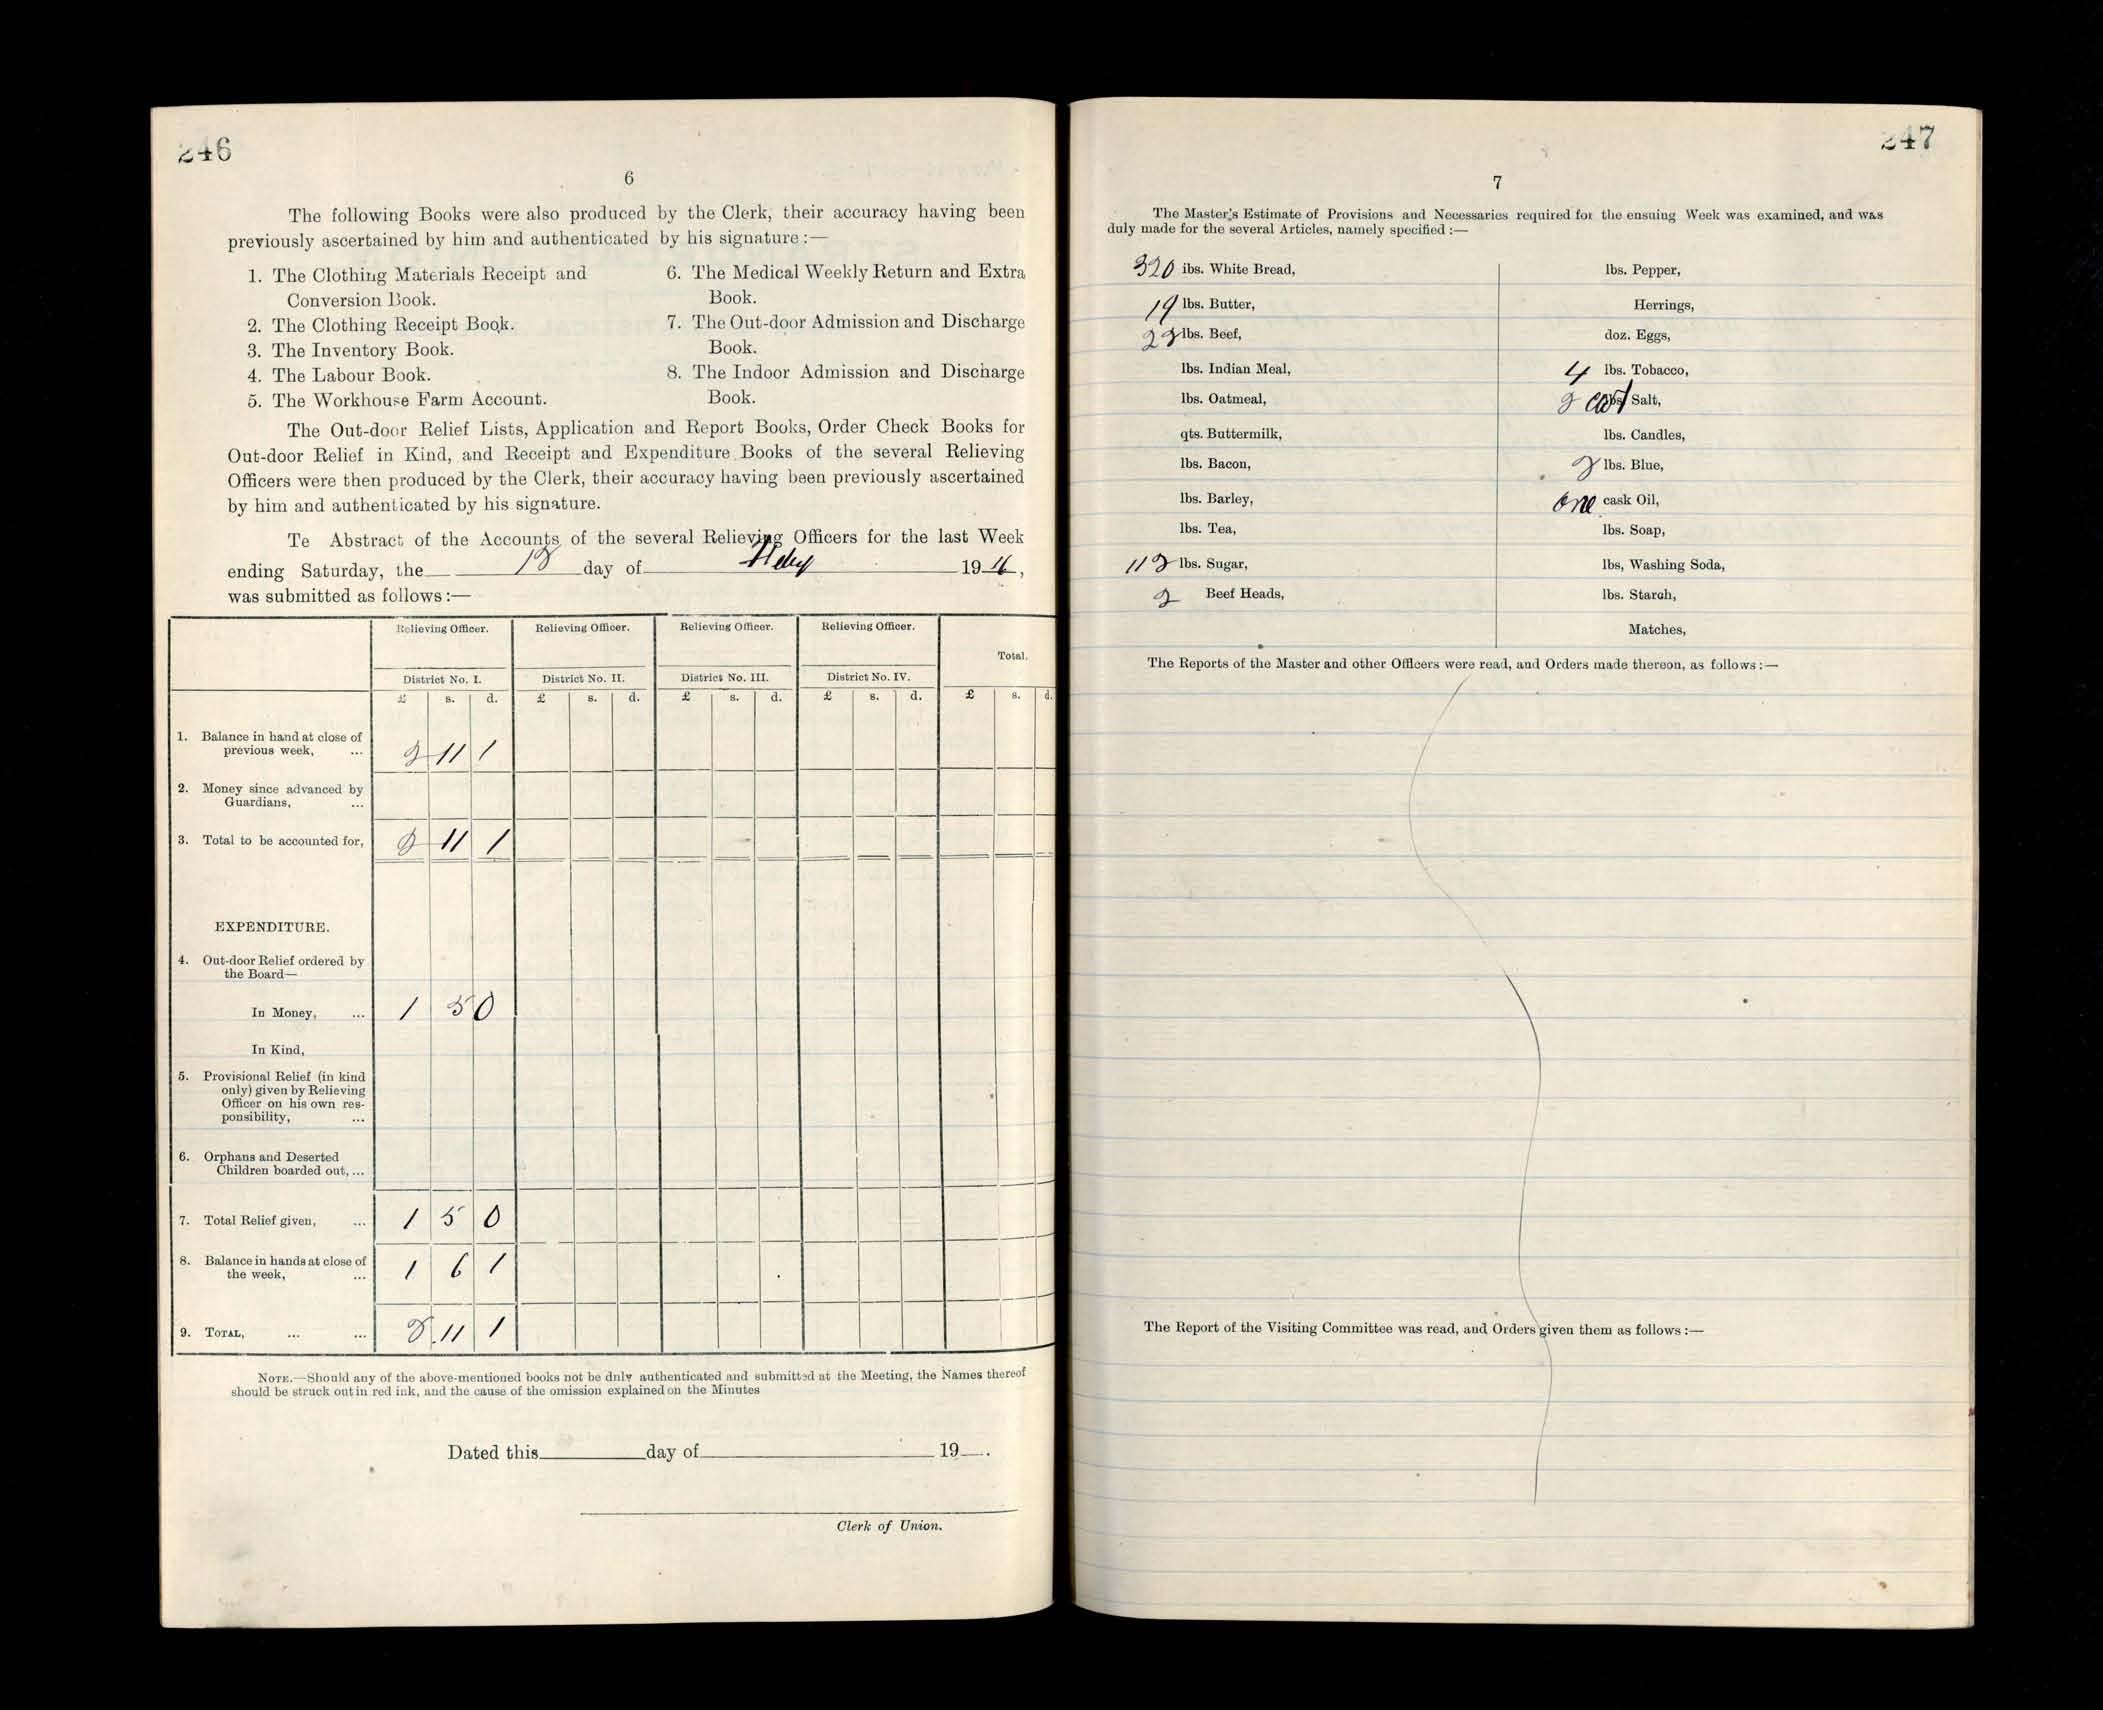 246
6
The following Books were also produced by the Clerk, their accuracy having been
previously ascertained by him and authenticated by his signature :—
1. The Clothing Materials Receipt and
Conversion Book.
2. The Clothing Receipt Book.
3. The Inventory Book.
4. The Labour Book.
5. The Workhouse Farm Account.
6. The Medical Weekly Return and Extra
Book.
7. The Out-door Admission and Discharge
Book.
8. The Indoor Admission and Discharge
Book.
The Out-door Relief Lists, Application and Report Books, Order Check Books for
Out-door Relief in Kind, and Receipt and Expenditure Books of the several Relieving
Officers were then produced by the Clerk, their accuracy having been previously ascertained
by him and authenticated by his signature.
Te Abstract of the Accounts of the several Relieving Officers for the last Week
ending Saturday, the 12 day of Feby 1916,
was submitted as follows :—
Relieving Officer. Relieving Officer. Relieving Officer. Relieving Officer.
Total.
District No. I. District No. II. District No. III. District No. IV.
£ s. d. £ s. d. £ s. d. £ s. d. £ s. d.
1. Balance in hand at close of
previous week, ... 2 11 1
2. Money since advanced by
Guardians, ...
3. Total to be accounted for, 2 11 1
EXPENDITURE.
4. Out-door Relief ordered by
the Board—
In Money, ... 1 5 0
In Kind,
5. Provisional Relief (in kind
only) given by Relieving
Officer on his own res-
ponsibility, ...
6. Orphans and Deserted
Children boarded out, ...
7. Total Relief given, ... 1 5 0
8. Balance in hands at close of
the week, ... 1 6 1
9. TOTAL, ... ... 2 11 1
NOTE.—Should any of the above-mentioned books not be dnly authenticated and submitted at the Meeting, the Names thereof
should be struck out in red ink, and the cause of the omission explained on the Minutes
Dated this day of 19 .
Clerk of Union.
247
7
The Master's Estimate of Provisions and Necessaries required for the ensuing Week was examined, and was
duly made for the several Articles, namely specified :—
320 lbs. White Bread,
19 lbs. Butter,
22 lbs. Beef,
lbs. Indian Meal,
lbs. Oatmeal,
qts. Buttermilk,
lbs. Bacon,
lbs. Barley,
lbs. Tea,
112 lbs. Sugar,
2 Beef Heads,
lbs. Pepper,
Herrings,
doz. Eggs,
4 lbs. Tobacco,
2 cwt lbs. Salt,
lbs. Candles,
2 lbs. Blue,
One cask Oil,
lbs. Soap,
lbs, Washing Soda,
lbs. Starch,
Matches,
The Reports of the Master and other Officers were read, and Orders made thereon, as follows :—
The Report of the Visiting Committee was read, and Orders given them as follows :—